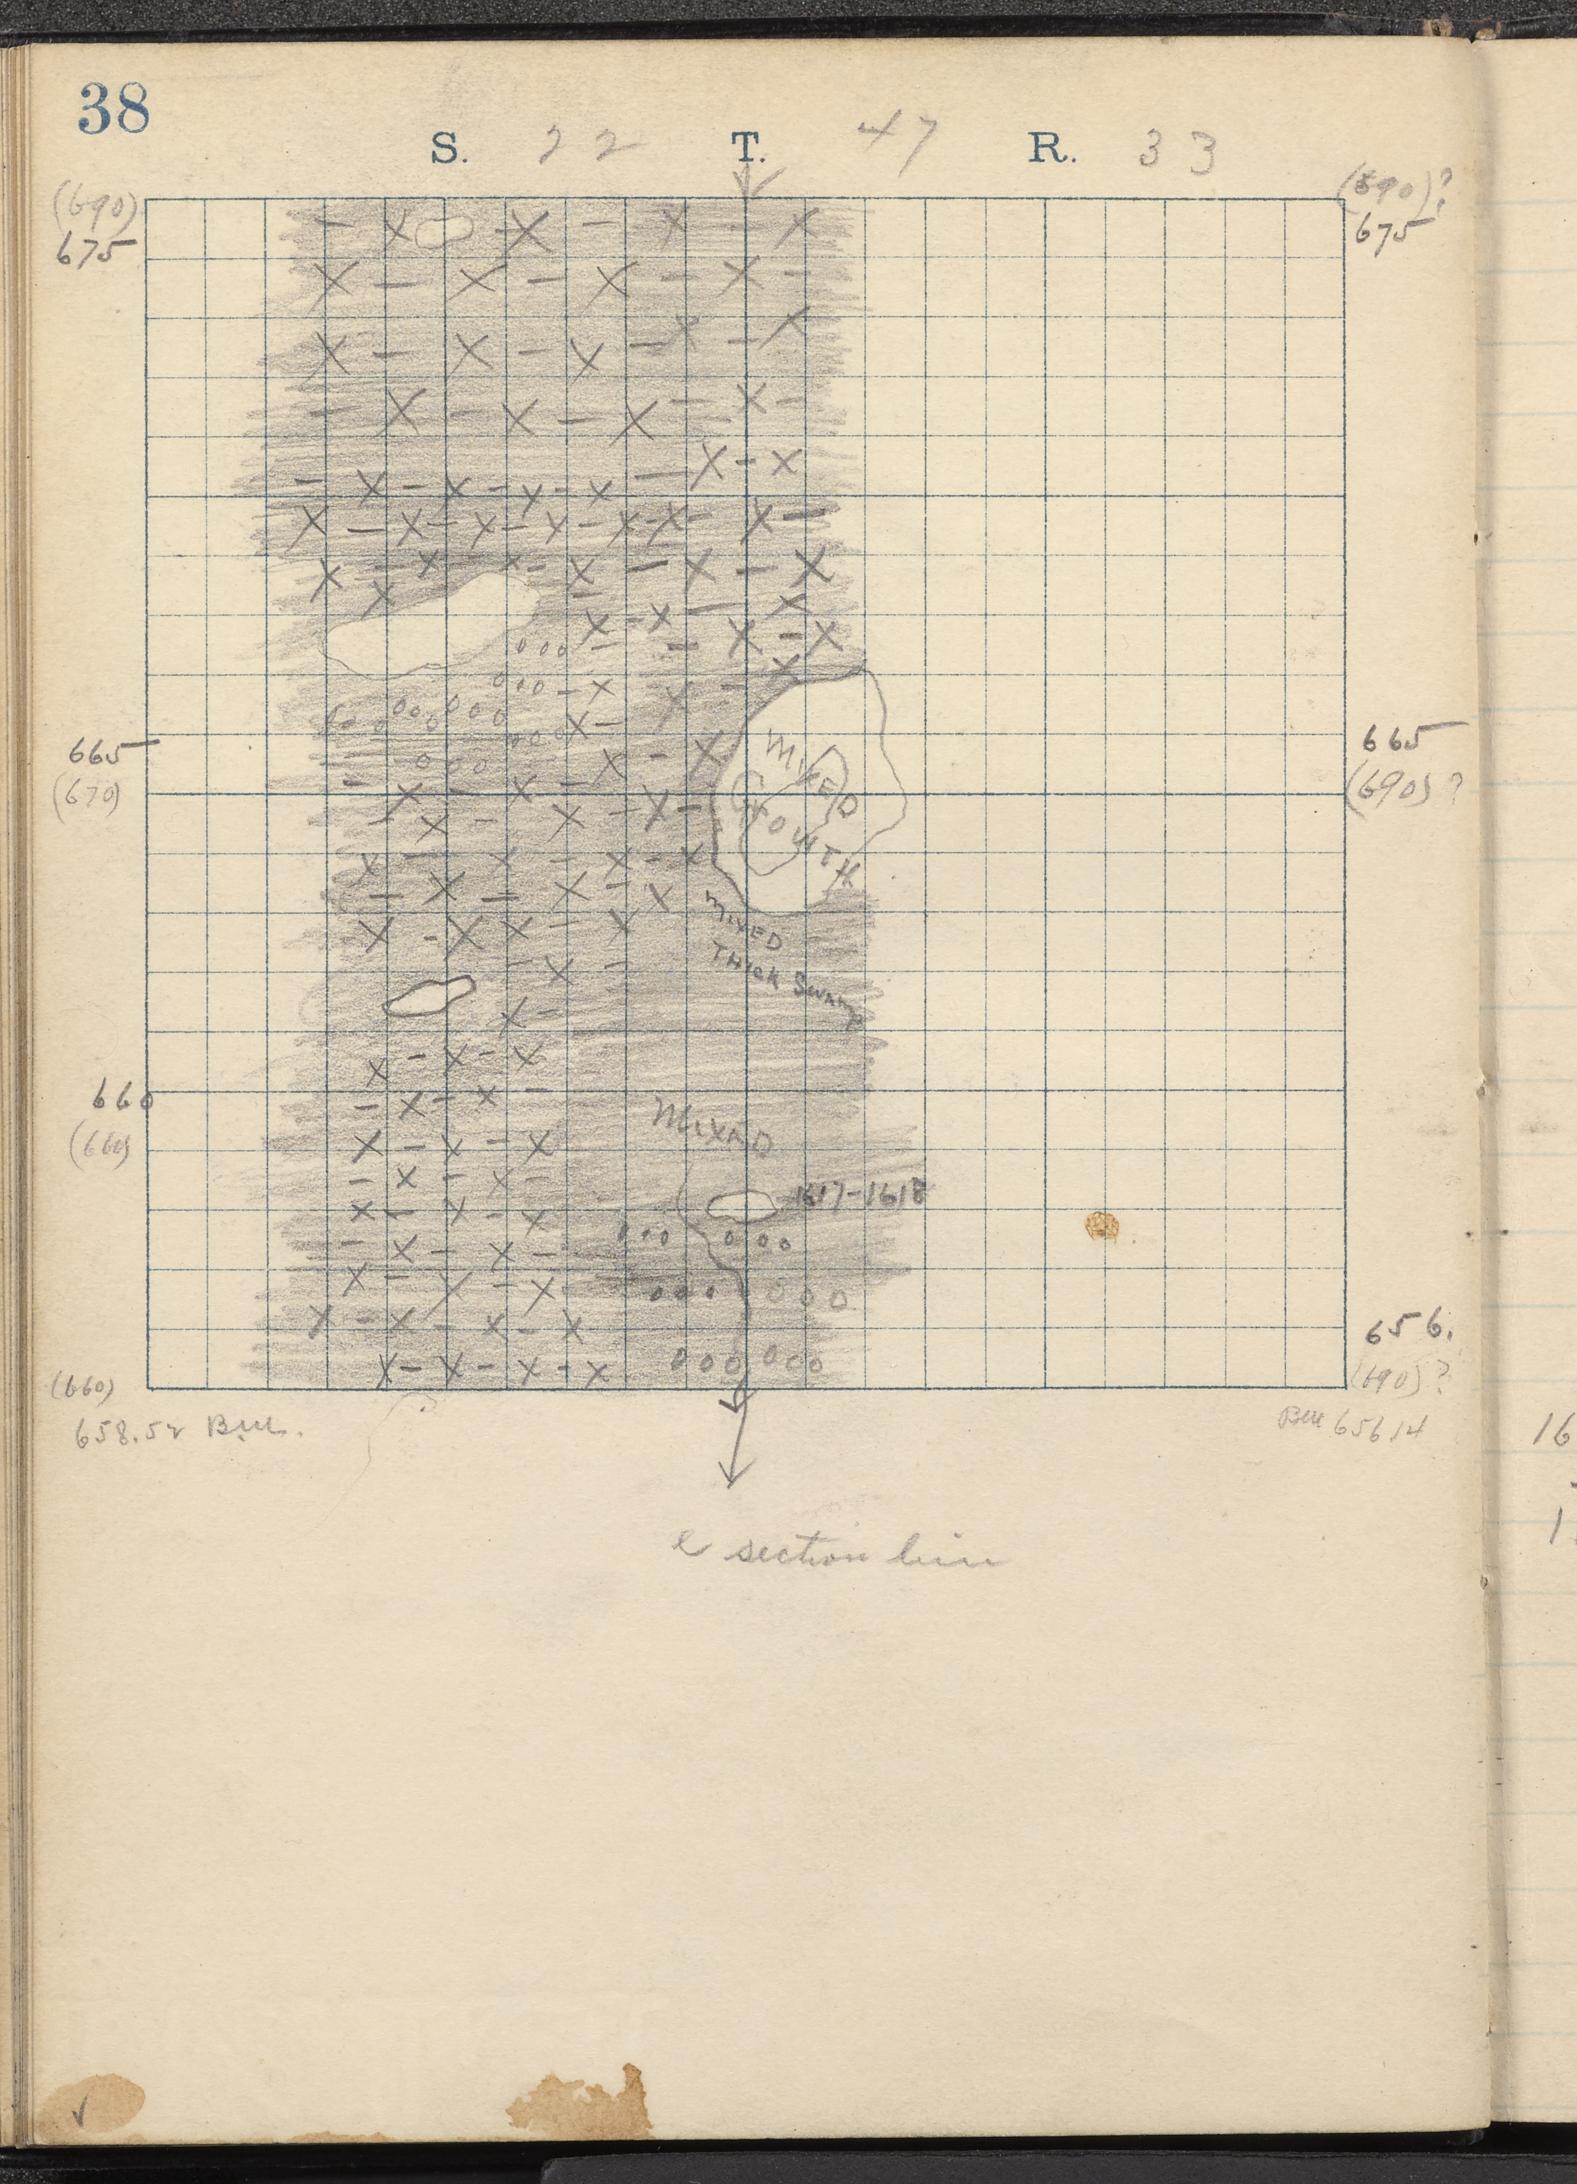 38
S. 22 T. 47 R. 33
(690) (690)?
675 675
MIXED
GROWTH
665 665
(670) (690)?
MIXED
THICK Swamp
660
MIXED
(660)
1617-1618
656.
(660) (690)?
658.52 B.M. BM 656.14
e section line
16
1